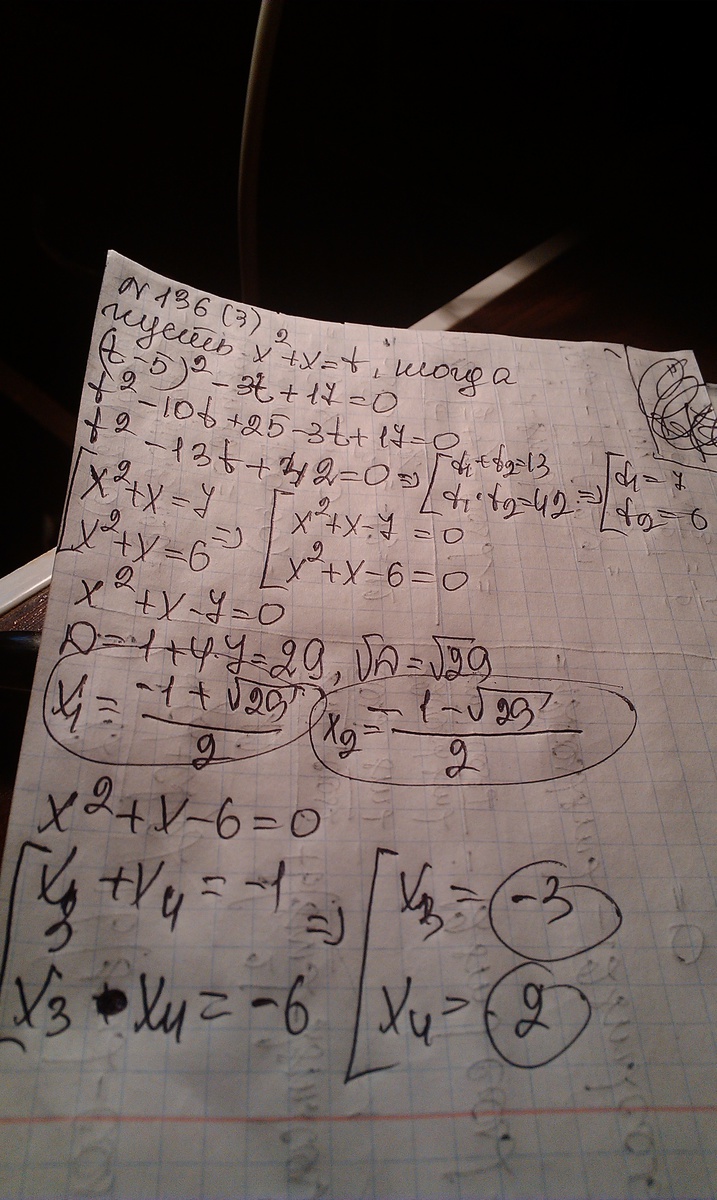 №136(3)
пусть x²+x=t, тогда
(t-5)²-3t+17=0
t²-10t+25-3t+17=0
t²-13t+42=0 => [t₁+t₂=13 t₁·t₂=42 => [t₁=7 t₂=6
[x²+x=7 x²+x=6 => [x²+x-7=0 x²+x-6=0
x²+x-7=0
D=1+4·7=29, √D=√29
x₁=(-1+√29)/2 x₂=(-1-√29)/2
x²+x-6=0
[x₃+x₄=-1 => [x₃=-3
x₃·x₄=-6 x₄=2